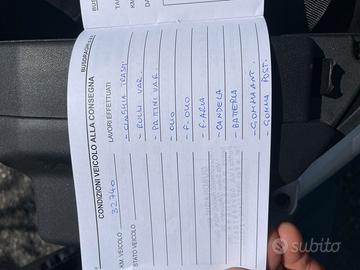 CONDIZIONI VEICOLO ALLA CONSEGNA
KM. VEICOLO 32740
STATO VEICOLO
LAVORI EFFETTUATI
- CINGHIA TRASM.
- RULLI VAR.
- PATTINI VAR.
- OLIO
- F. OLIO
- F. ARIA
- CANDELA
- BATTERIA
- GOMMA ANT.
- GOMMA POST.
subito